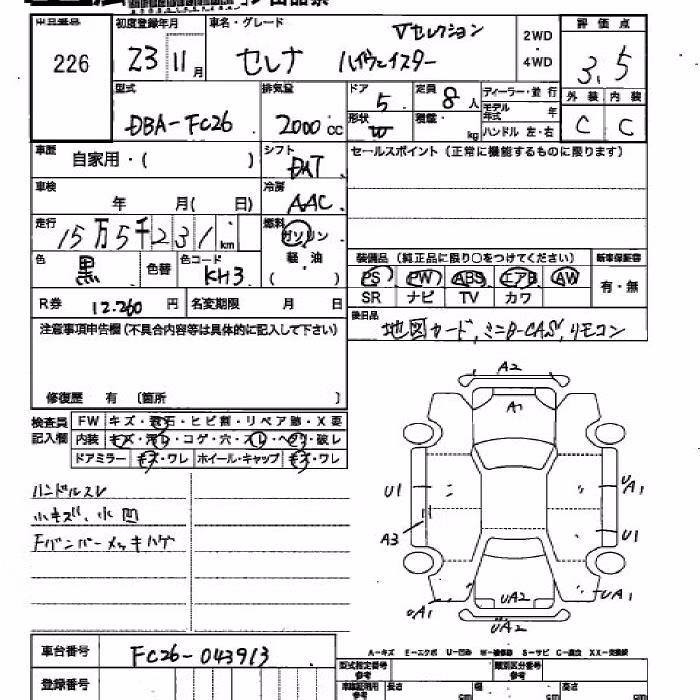 出品番号 初度登録年月 車名・グレード Vセレクション 2WD 評価点
226 23 11月 セレナ ハイウェイスター ・ 4WD 3.5
型式 排気量 ドア 5 定員 8人 ディーラー・並行 外装 内装
DBA-FC26 2000cc 形状 W 積載・ kg モデル年式 年 ハンドル 左・右 C C
車歴 自家用・( ) シフト DAT セールスポイント(正常に機能するものに限ります)
車検 年 月( 日) 冷房 AAC
走行 15万5千231km 燃料 ガソリン・軽油 ( )
色 黒 色替 色コード KH3 装備品(純正品に限り○をつけてください) 新車保証書
PS PW ABS エアB AW 有・無
SR ナビ TV カワ
R券 12.260円 名変期限 月 日 後日品
地図カード,ミニB-CAS,リモコン
注意事項申告欄(不具合内容等は具体的に記入して下さい)
修復歴 有 〔箇所 〕
検査員記入欄 FW キズ・飛石・ヒビ割・リペア跡・X要
内装 キズ・汚レ・コゲ・穴・スレ・ヘコ・破レ
ドアミラー キズ・ワレ ホイール・キャップ キズ・ワレ
ハンドルスレ
小キズ、小凹
Fバンパーメッキハゲ
A2
A1
U1 UA1
A3 U1
UA1 UA2 UA1
UA2
A-キズ E-エクボ U-凹み W-補修跡 S-サビ C-腐食 XX-交換跡
車台番号 FC26-043913
型式指定番号 参考 類別区分番号 参考
登録番号 長さ cm 幅 cm 高さ cm